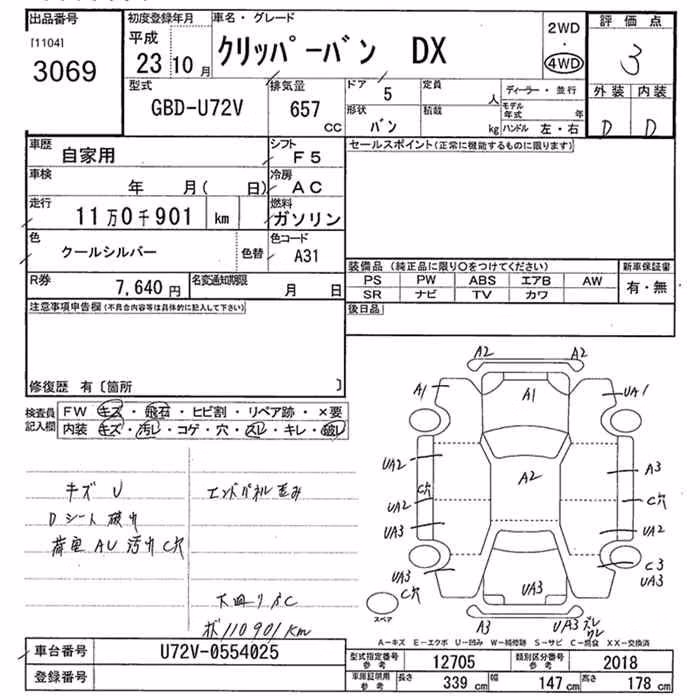 出品番号
[1104]
3069
初度登録年月
平成
23 10 月
車名・グレード
クリッパーバン DX
2WD
・
4WD
評価点
3
外装 内装
D D
型式
GBD-U72V
排気量
657
CC
ドア
5
定員
人
ディーラー・並行
モデル年式 年
形状
バン
積載
kg
ハンドル 左・右
車歴
自家用
シフト
F5
車検
年 月( 日)
冷房
AC
走行
11万0千901 km
燃料
ガソリン
色
クールシルバー
色替
色コード
A31
R券
7,640 円
名変通知期限
月 日
セールスポイント(正常に機能するものに限ります)
装備品 (純正品に限り○をつけてください)
PS PW ABS エアB AW
SR ナビ TV カワ
新車保証書
有・無
後日品
注意事項申告欄(不具合内容等は具体的に記入して下さい)
修復歴 有〔箇所 〕
検査員
記入欄
FW キズ・飛石・ヒビ割・リペア跡・×要
内装 キズ・汚レ・コゲ・穴・スレ・キレ・破レ
キズ U
Dシート 破れ
荷室 AU 汚れ C穴
エンドパネル歪み
下廻りサビC
ボ110901km
A2 A2
A1 A1 UA1
UA2 A3
C穴 A2 C穴
UA2
UA3 UA2
C3
UA3 UA3 UA3
C穴
スペア
A3 UA3 ズレ
ワレ
A-キズ E-エクボ U-凹み W-補修跡 S-サビ C-腐食 XX-交換済
車台番号
U72V-0554025
登録番号
型式指定番号
参考
12705
類別区分番号
参考
2018
車庫証明用
参考
長さ 339 cm 幅 147 cm 高さ 178 cm